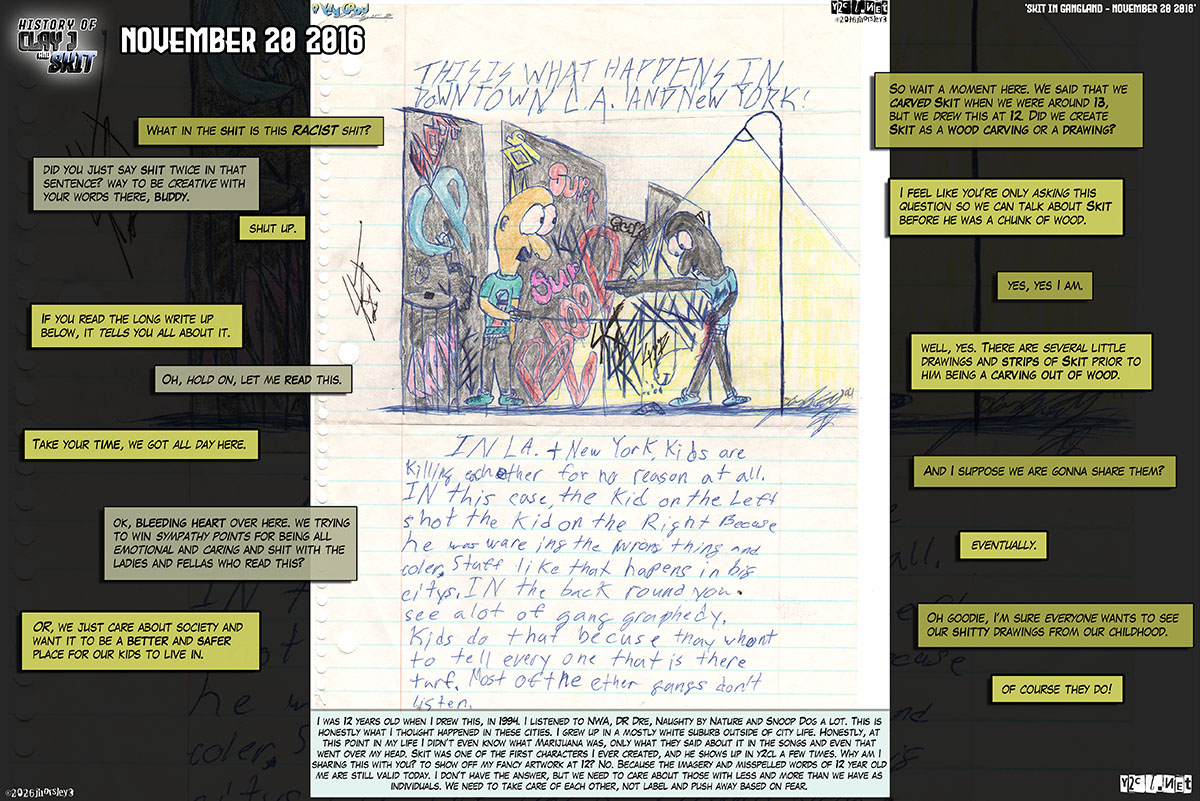 HISTORY OF
CLAY J
AND
SKIT
NOVEMBER 20 2016
Y2CL.NET
©2026jhorsley3
'SKIT IN GANGLAND - NOVEMBER 20 2016'
WHAT IN THE SHIT IS THIS RACIST SHIT?
DID YOU JUST SAY SHIT TWICE IN THAT
SENTENCE? WAY TO BE CREATIVE WITH
YOUR WORDS THERE, BUDDY.
SHUT UP.
IF YOU READ THE LONG WRITE UP
BELOW, IT TELLS YOU ALL ABOUT IT.
OH, HOLD ON, LET ME READ THIS.
TAKE YOUR TIME, WE GOT ALL DAY HERE.
OK, BLEEDING HEART OVER HERE. WE TRYING
TO WIN SYMPATHY POINTS FOR BEING ALL
EMOTIONAL AND CARING AND SHIT WITH THE
LADIES AND FELLAS WHO READ THIS?
OR, WE JUST CARE ABOUT SOCIETY AND
WANT IT TO BE A BETTER AND SAFER
PLACE FOR OUR KIDS TO LIVE IN.
THIS IS WHAT HAPPENS IN
DOWNTOWN L.A. AND NEW YORK!
Surop
Surop
IN L.A. + New York, Kids are
killing eachother for no reason at all.
IN this case, the Kid on the Left
shot the Kid on the Right Becuse
he was ware ing the wrong thing and
coler. Stuff like that hapens in big
citys. IN the back round you
see alot of gang graphedy.
Kids do that becuse thay whont
to tell every one that is there
turf. Most of the ether gangs don't
listen.
I WAS 12 YEARS OLD WHEN I DREW THIS, IN 1994. I LISTENED TO NWA, DR DRE, NAUGHTY BY NATURE AND SNOOP DOG A LOT. THIS IS
HONESTLY WHAT I THOUGHT HAPPENED IN THESE CITIES. I GREW UP IN A MOSTLY WHITE SUBURB OUTSIDE OF CITY LIFE. HONESTLY, AT
THIS POINT IN MY LIFE I DIDN'T EVEN KNOW WHAT MARIJUANA WAS, ONLY WHAT THEY SAID ABOUT IT IN THE SONGS AND EVEN THAT
WENT OVER MY HEAD. SKIT WAS ONE OF THE FIRST CHARACTERS I EVER CREATED, AND HE SHOWS UP IN Y2CL A FEW TIMES. WHY AM I
SHARING THIS WITH YOU? TO SHOW OFF MY FANCY ARTWORK AT 12? NO. BECAUSE THE IMAGERY AND MISSPELLED WORDS OF 12 YEAR OLD
ME ARE STILL VALID TODAY. I DON'T HAVE THE ANSWER, BUT WE NEED TO CARE ABOUT THOSE WITH LESS AND MORE THAN WE HAVE AS
INDIVIDUALS. WE NEED TO TAKE CARE OF EACH OTHER, NOT LABEL AND PUSH AWAY BASED ON FEAR.
SO WAIT A MOMENT HERE. WE SAID THAT WE
CARVED SKIT WHEN WE WERE AROUND 13,
BUT WE DREW THIS AT 12. DID WE CREATE
SKIT AS A WOOD CARVING OR A DRAWING?
I FEEL LIKE YOU'RE ONLY ASKING THIS
QUESTION SO WE CAN TALK ABOUT SKIT
BEFORE HE WAS A CHUNK OF WOOD.
YES, YES I AM.
WELL, YES. THERE ARE SEVERAL LITTLE
DRAWINGS AND STRIPS OF SKIT PRIOR TO
HIM BEING A CARVING OUT OF WOOD.
AND I SUPPOSE WE ARE GONNA SHARE THEM?
EVENTUALLY.
OH GOODIE, I'M SURE EVERYONE WANTS TO SEE
OUR SHITTY DRAWINGS FROM OUR CHILDHOOD.
OF COURSE THEY DO!
©2026jhorsley3
Y2CL.NET